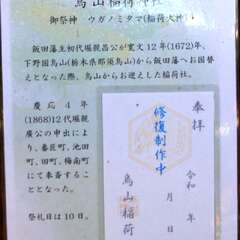 烏山稲荷神社
御祭神 ウガノミタマ(稲荷大神)
飯田藩主初代堀親昌公が寛文12年(1672年)、
下野国烏山(栃木県那須烏山)から飯田へお国替
えとなった際、烏山からお迎えした稲荷社。
慶応4年
(1868)12代堀親
廣公の申出によ
り、番匠町、池田
町、田町、梅南町
にて奉斎するこ
ととなった。
祭礼日は10日。
奉拝
修復制作中
令和 年
月 日
烏山稲荷